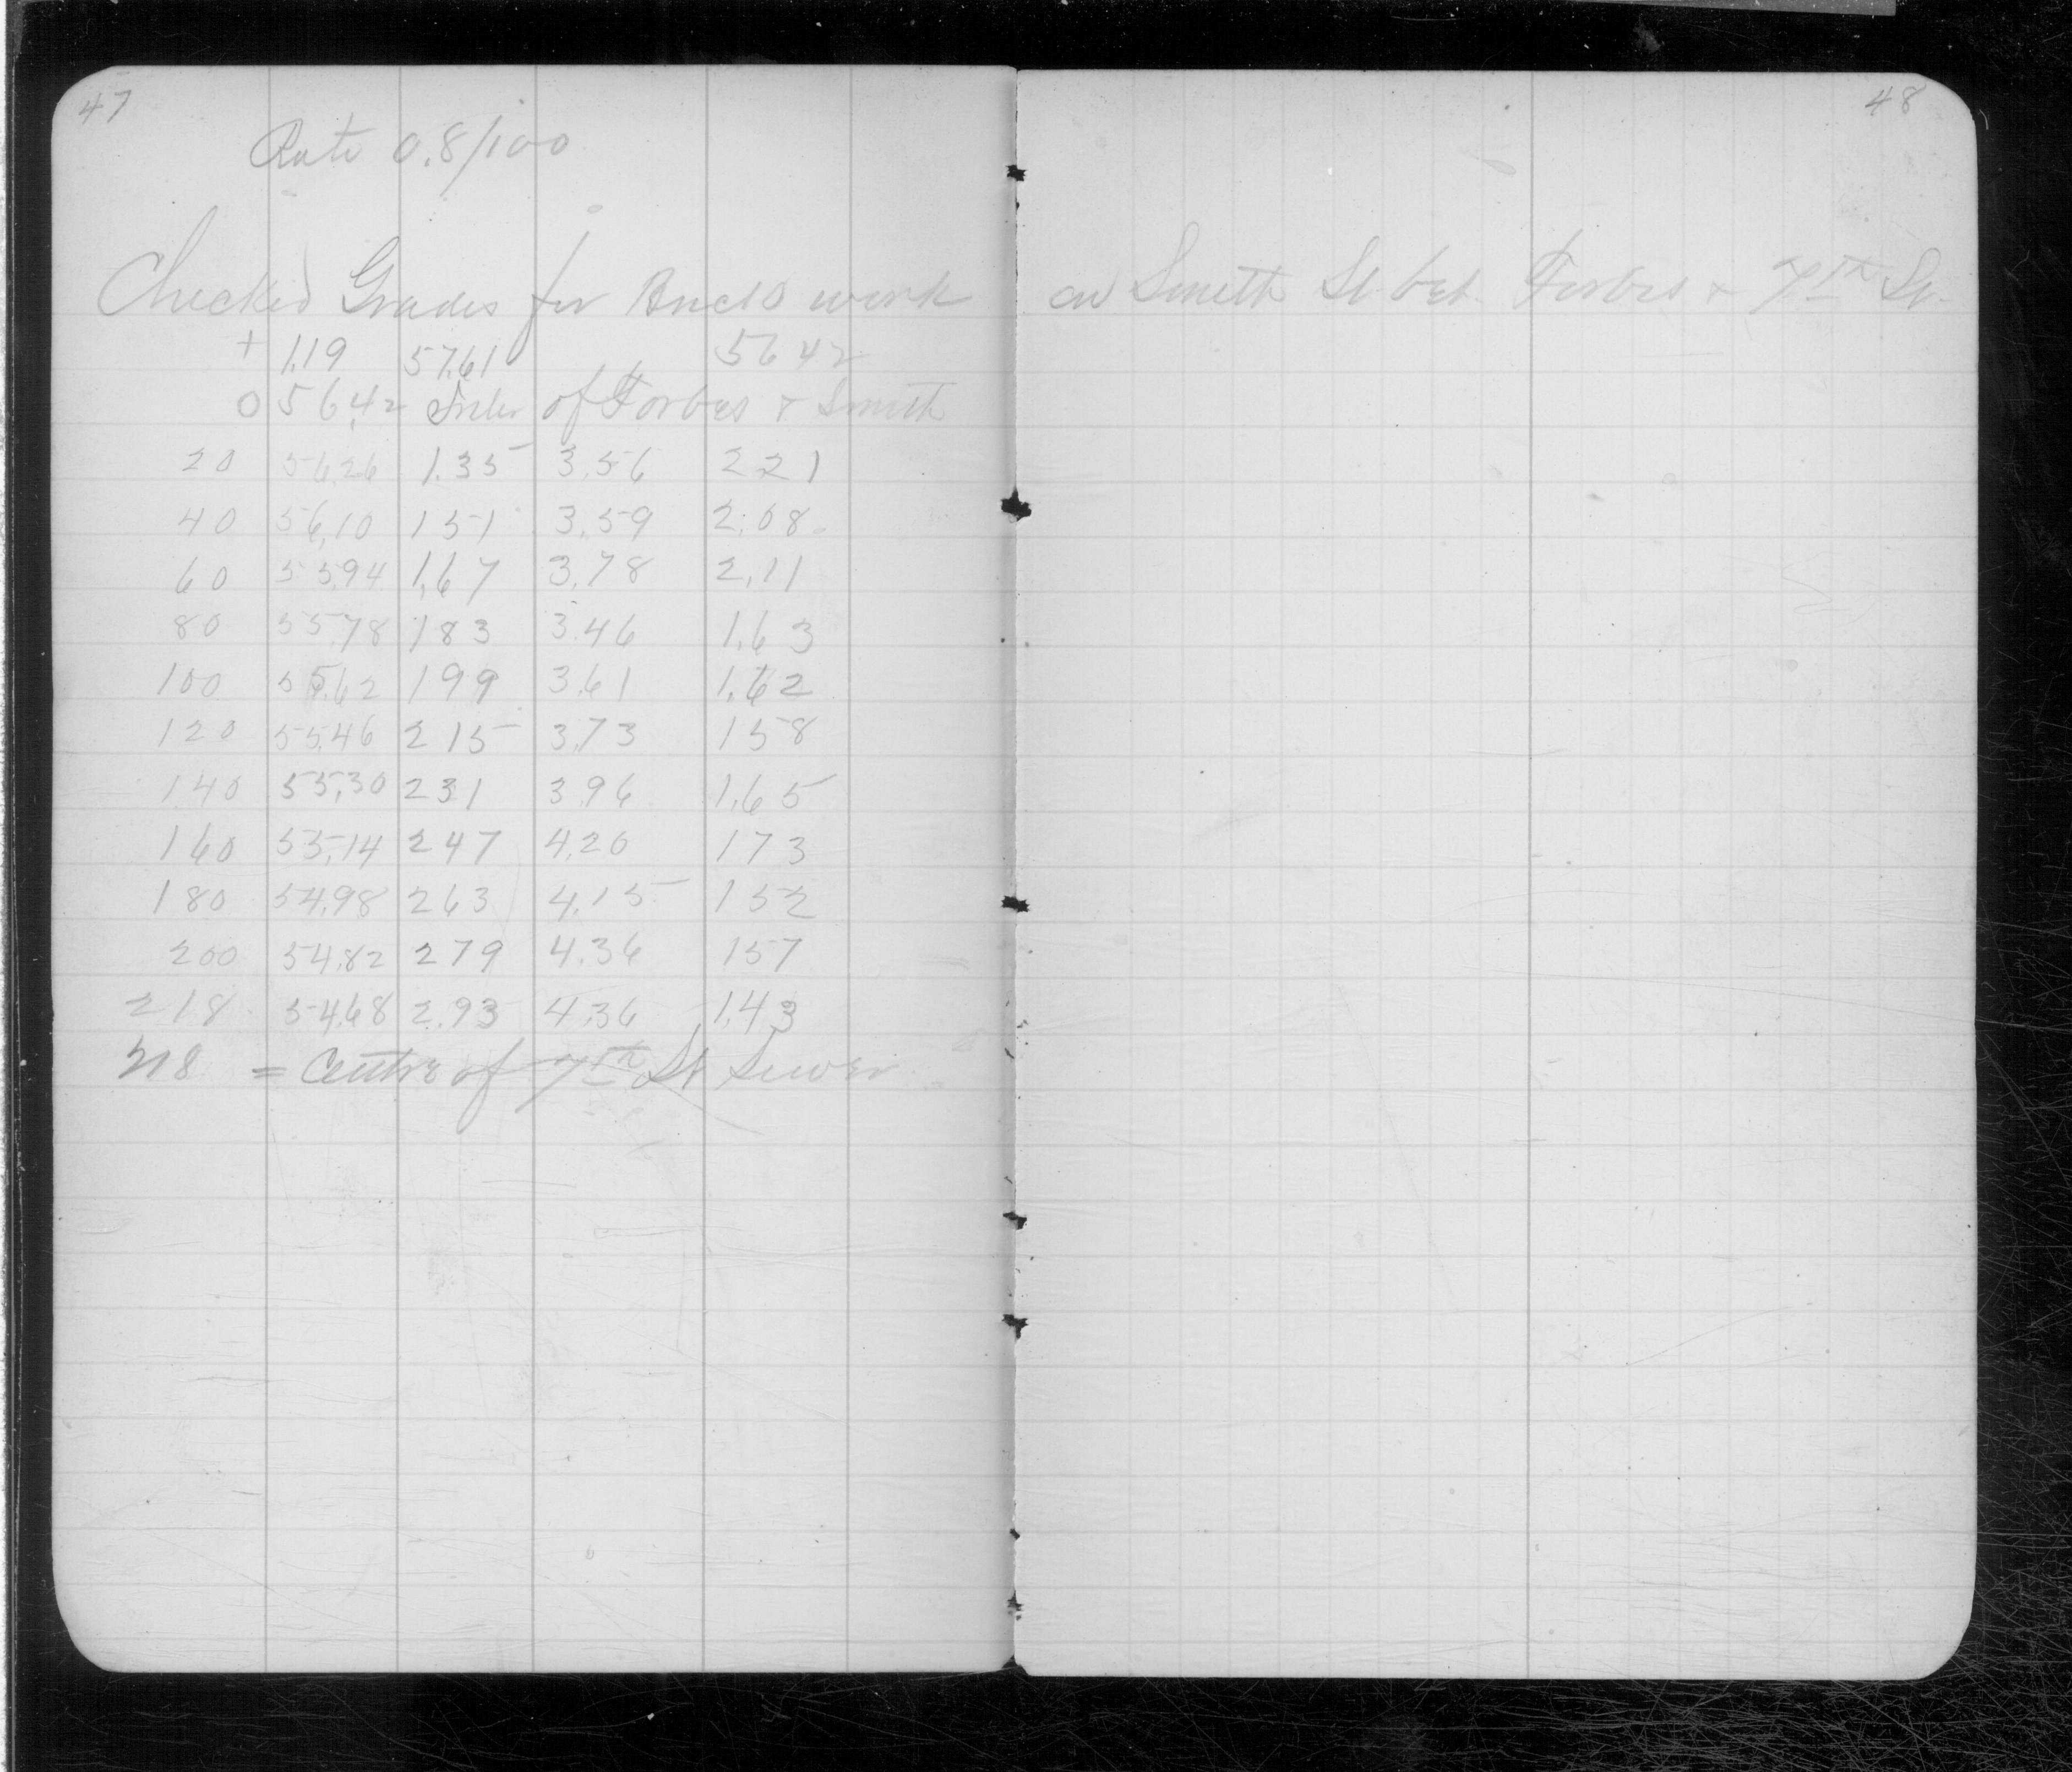 47
48
Rate 0.8/100
Checked Grades for Brick work on Smith St. bet. Forbes & 7th St.
+ 1.19 57.61 56 42
0 56.42 Inter of Forbes & Smith
20 56.26 1.35 3.56 2 21
40 56.10 1 51 3.59 2.08
60 55.94 1.67 3.78 2.11
80 55.78 1 83 3.46 1.63
100 55.62 1 99 3.61 1.62
120 55.46 2 15 3.73 1 58
140 55.30 2 31 3 96 1.65
160 55.14 2 47 4.20 1 73
180 54.98 2 63 4.15 1 52
200 54.82 2 79 4.36 1 57
218 54.68 2.93 4.36 1.43
218 = Centre of 7th St Sewer